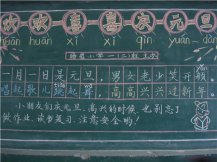 欢欢喜喜庆元旦
huān huān xǐ xǐ qìng yuán dàn
一月一日是元旦,男女老少笑开颜
唱起歌儿跳起舞,高高兴兴过新年
小朋友们庆元旦,高兴的时候,也别忘了
做作业,读书复习,注意安全哟!